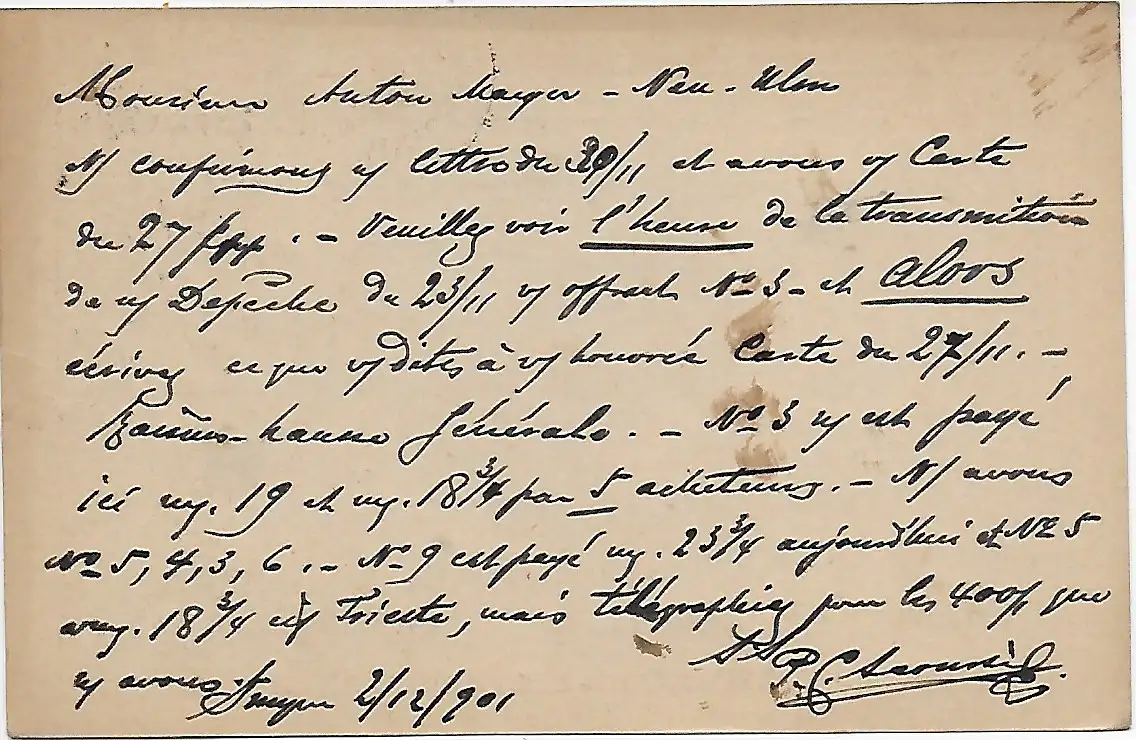 Monsieur Anton Mayer - Neu-Ulm
N/ confirmons n/ lettre du 30/11 et avons v/ Carte
du 27 . - Veuillez voir l'heure de la transmition
de n/ Depêche du 23/11 v/ offrant No 3 - et alors
écrivez ce que v/ dites à v/ honorée Carte du 27/11. -
hausse Générale. - No 3 est payé
ici 19 et 18 3/4 par 5 acheteurs. - N/ avons
No 5, 4, 3, 6 . - No 9 est payé 23 3/4 aujourd'hui et No 5
18 3/4 Trieste, mais télégraphiez pour les 400 que
avons. Smyrne 2/12/901